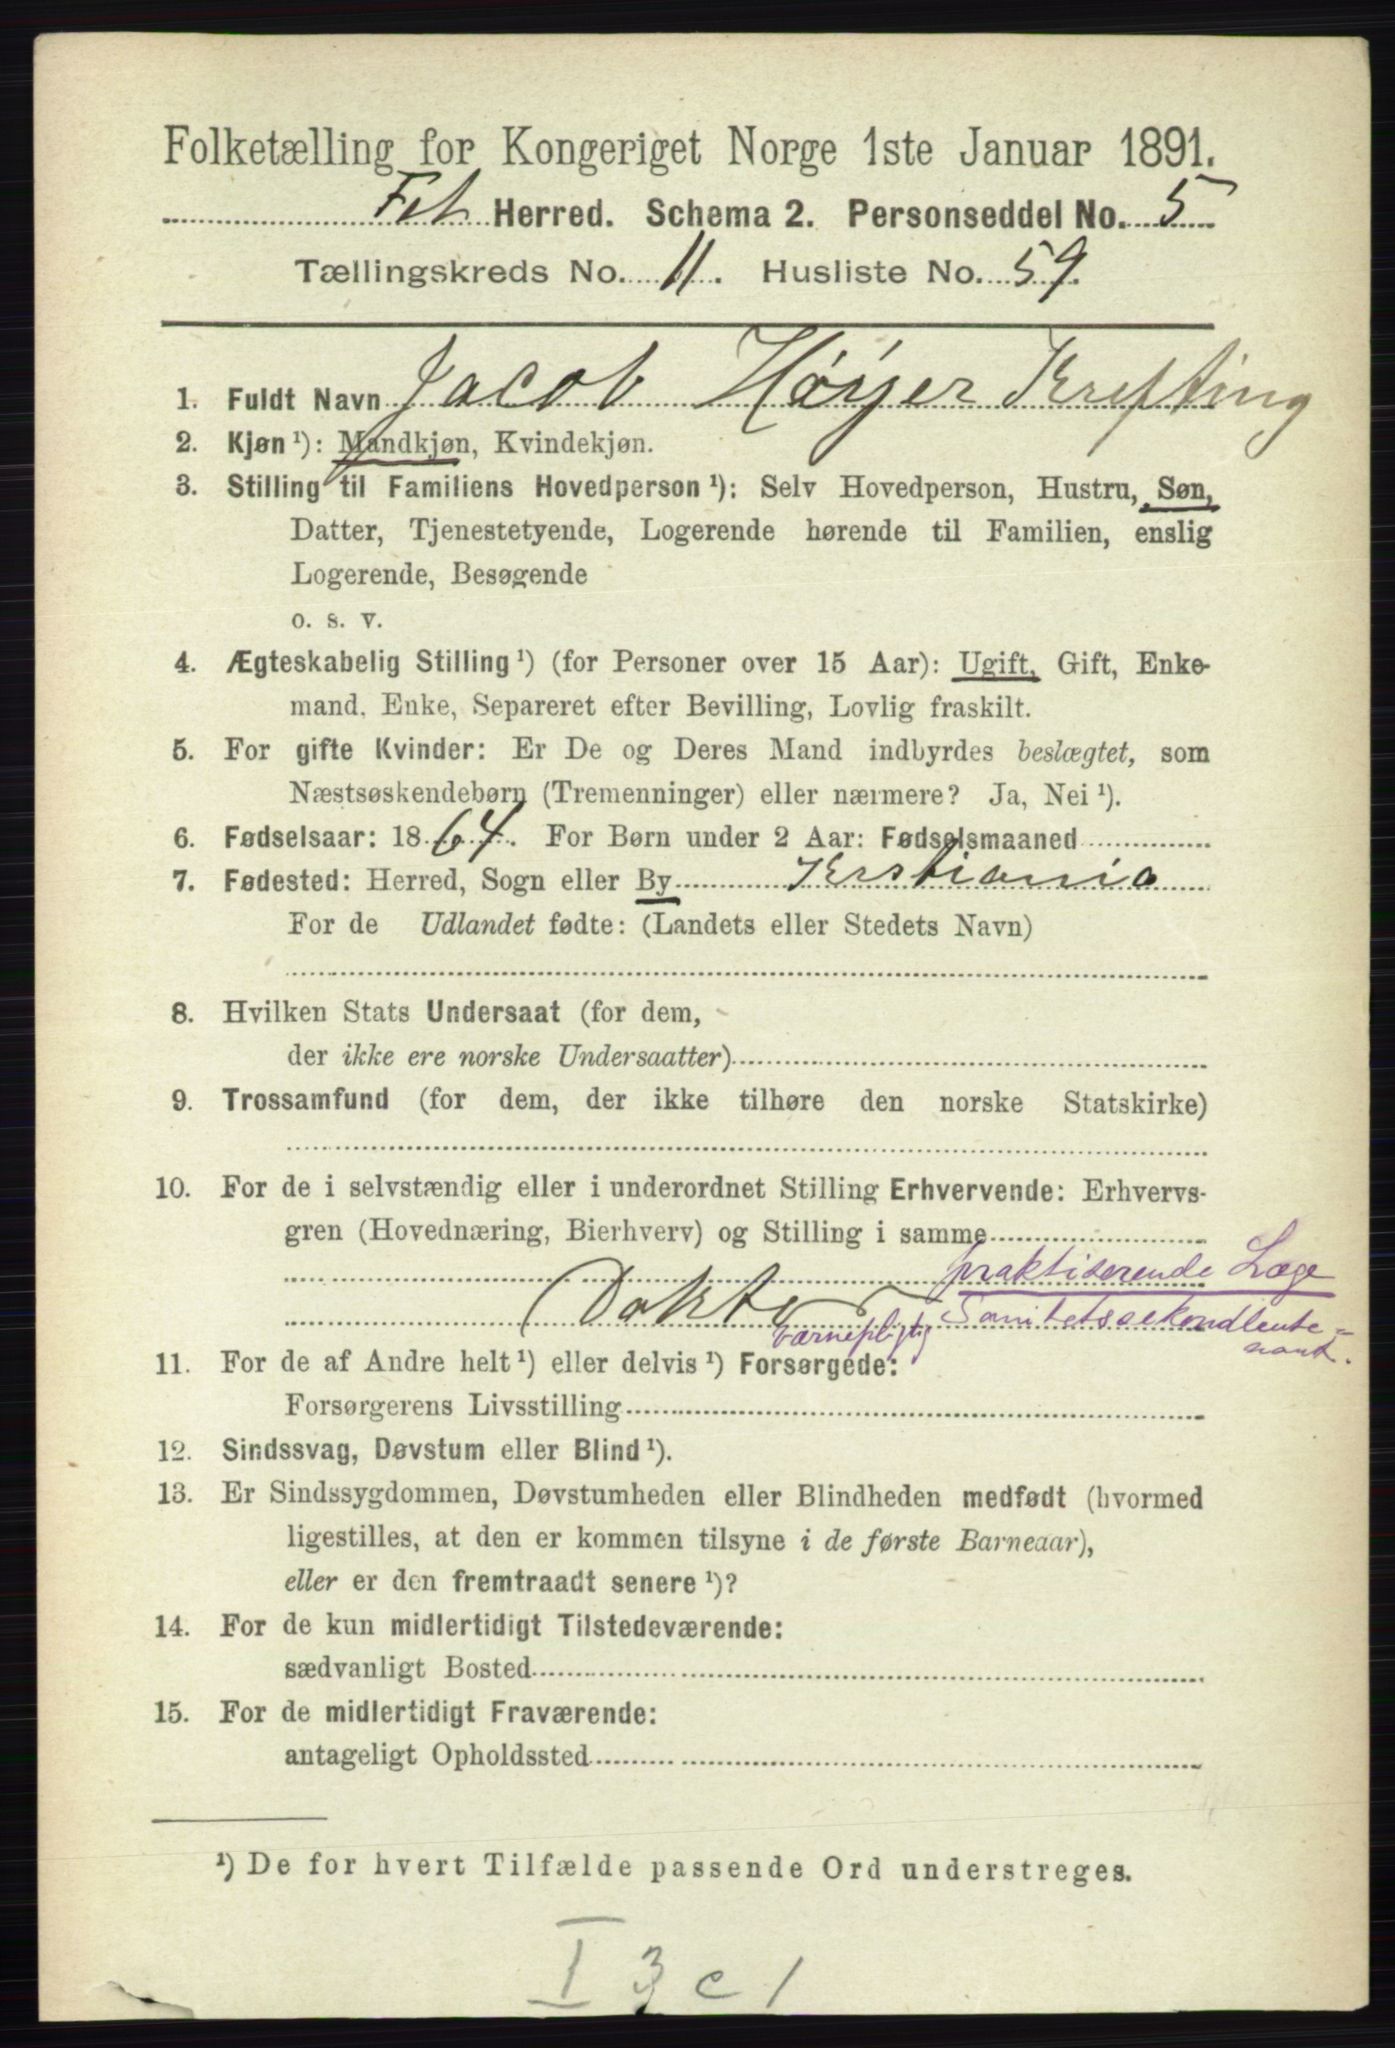 Folketælling for Kongeriget Norge 1ste Januar 1891.
Fet Herred. Schema 2. Personseddel No. 5
Tællingskreds No. 11. Husliste No. 59.
1. Fuldt Navn Jacob Høyer Krefting
2. Kjøn ¹): Mandkjøn, Kvindekjøn.
3. Stilling til Familiens Hovedperson ¹): Selv Hovedperson, Hustru, Søn,
Datter, Tjenestetyende, Logerende hørende til Familien, enslig
Logerende, Besøgende
o. s. v.
4. Ægteskabelig Stilling ¹) (for Personer over 15 Aar): Ugift, Gift, Enke-
mand, Enke, Separeret efter Bevilling, Lovlig fraskilt.
5. For gifte Kvinder: Er De og Deres Mand indbyrdes beslægtet, som
Næstsøskendebørn (Tremenninger) eller nærmere? Ja, Nei ¹).
6. Fødselsaar: 1864. For Børn under 2 Aar: Fødselsmaaned
7. Fødested: Herred, Sogn eller By Kristiania
For de Udlandet fødte: (Landets eller Stedets Navn)
8. Hvilken Stats Undersaat (for dem,
der ikke ere norske Undersaatter)
9. Trossamfund (for dem, der ikke tilhøre den norske Statskirke)
10. For de i selvstændig eller i underordnet Stilling Erhvervende: Erhvervs-
gren (Hovednæring, Bierhverv) og Stilling i samme
praktiserende Læge
Doktor
værnepligtig Sanitetssekondleute-
nant.
11. For de af Andre helt ¹) eller delvis ¹) Forsørgede:
Forsørgerens Livsstilling
12. Sindssvag, Døvstum eller Blind ¹).
13. Er Sindssygdommen, Døvstumheden eller Blindheden medfødt (hvormed
ligestilles, at den er kommen tilsyne i de første Barneaar),
eller er den fremtraadt senere ¹)?
14. For de kun midlertidigt Tilstedeværende:
sædvanligt Bosted
15. For de midlertidigt Fraværende:
antageligt Opholdssted
¹) De for hvert Tilfælde passende Ord understreges.
I 3 c 1